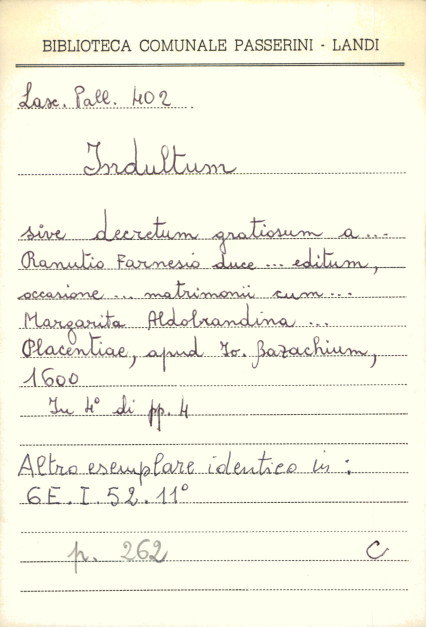 BIBLIOTECA COMUNALE PASSERINI - LANDI
Lasc. Pall. 402
Indultum
sive decretum gratiosum a ...
Ranutio Farnesio duce ... editum,
occasione ... matrimonii cum ...
Margarita Aldobrandina ...
Placentiae, apud Io. Bazachium,
1600
In 4° di pp. 4
Altro esemplare identico in :
6E. I. 52. 11°
p. 262 C